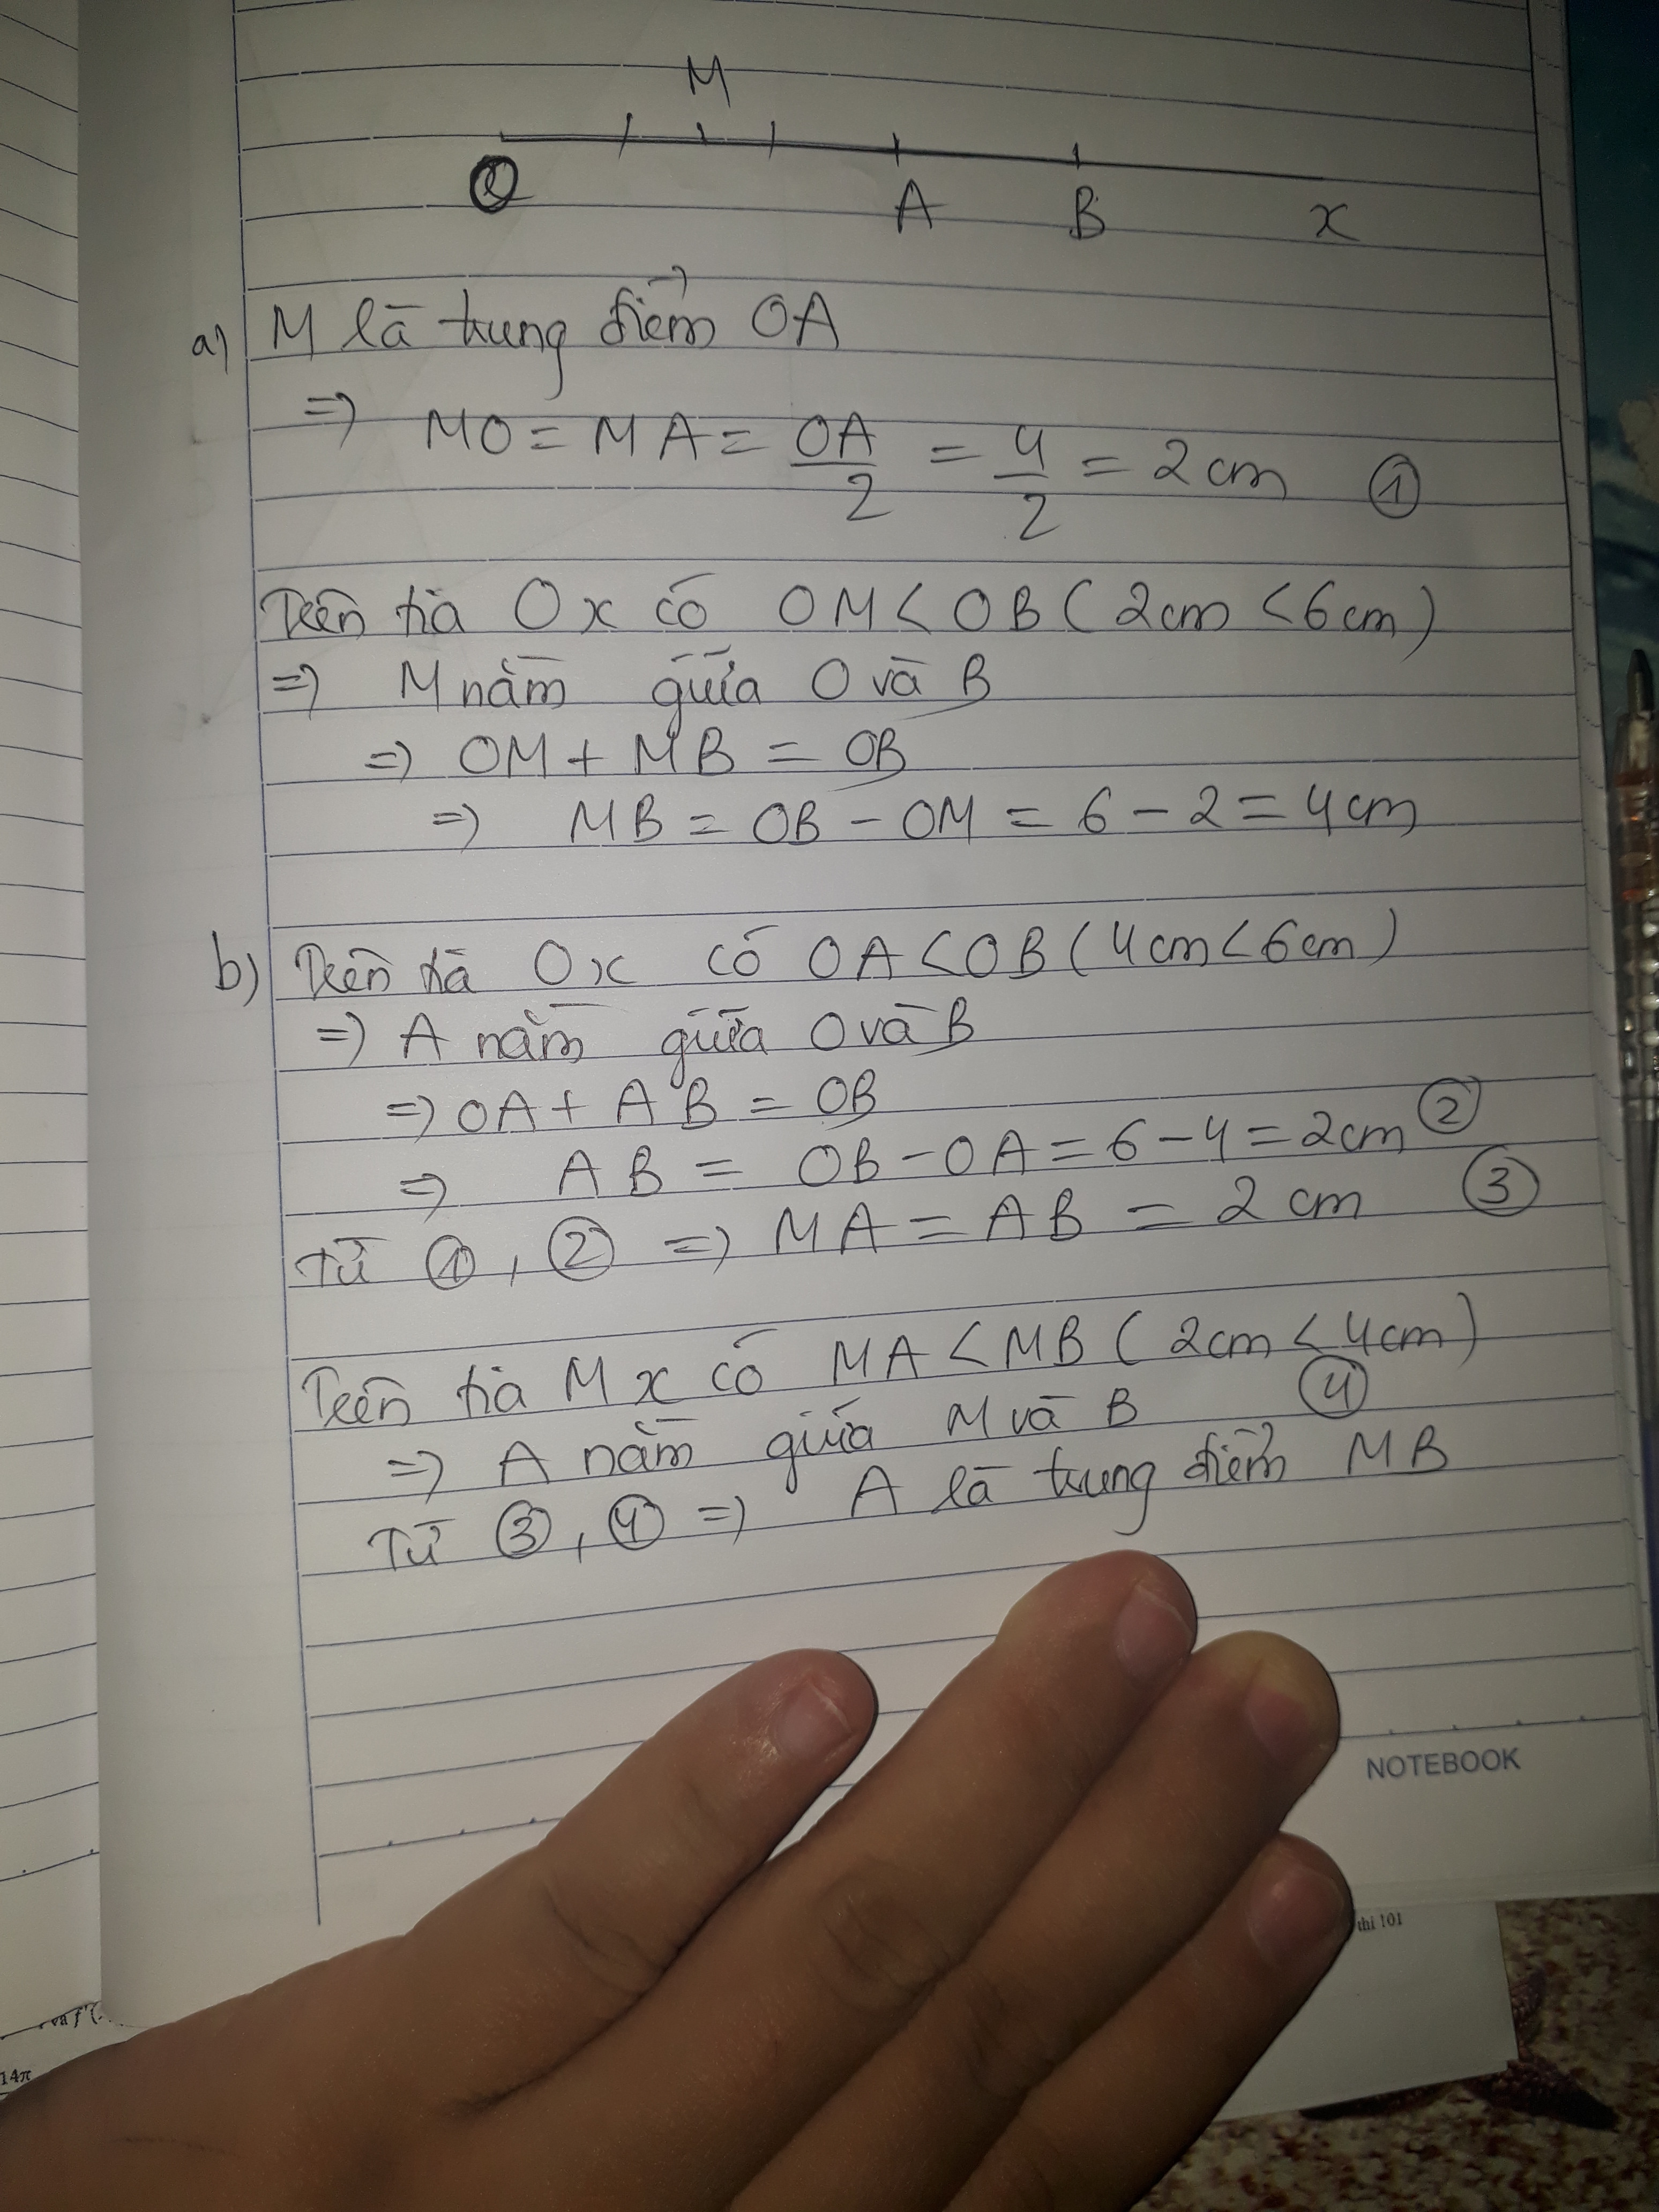 M
O A B x
a) M là trung điểm OA
=> MO = MA = OA/2 = 4/2 = 2cm ①
Trên tia Ox có OM < OB (2cm < 6cm)
=> M nằm giữa O và B
=> OM + MB = OB
=> MB = OB - OM = 6 - 2 = 4cm
b) Trên tia Ox có OA < OB (4cm < 6cm)
=> A nằm giữa O và B
=> OA + AB = OB
=> AB = OB - OA = 6 - 4 = 2cm ②
Từ ①, ② => MA = AB = 2 cm ③
Trên tia Mx có MA < MB (2cm < 4cm)
=> A nằm giữa M và B ④
Từ ③, ④ => A là trung điểm MB
NOTEBOOK
thi 101
và f'(
14π